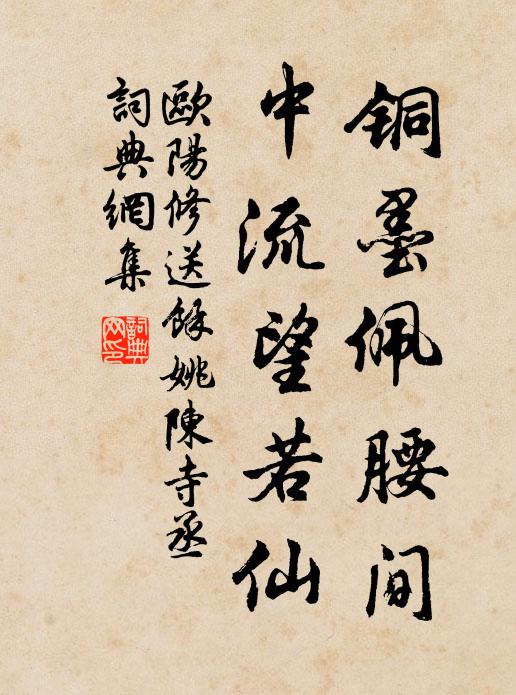 铜墨佩腰间
中流望若仙
歐陽修送餘姚陳寺丞
詞典網集
詞典网印